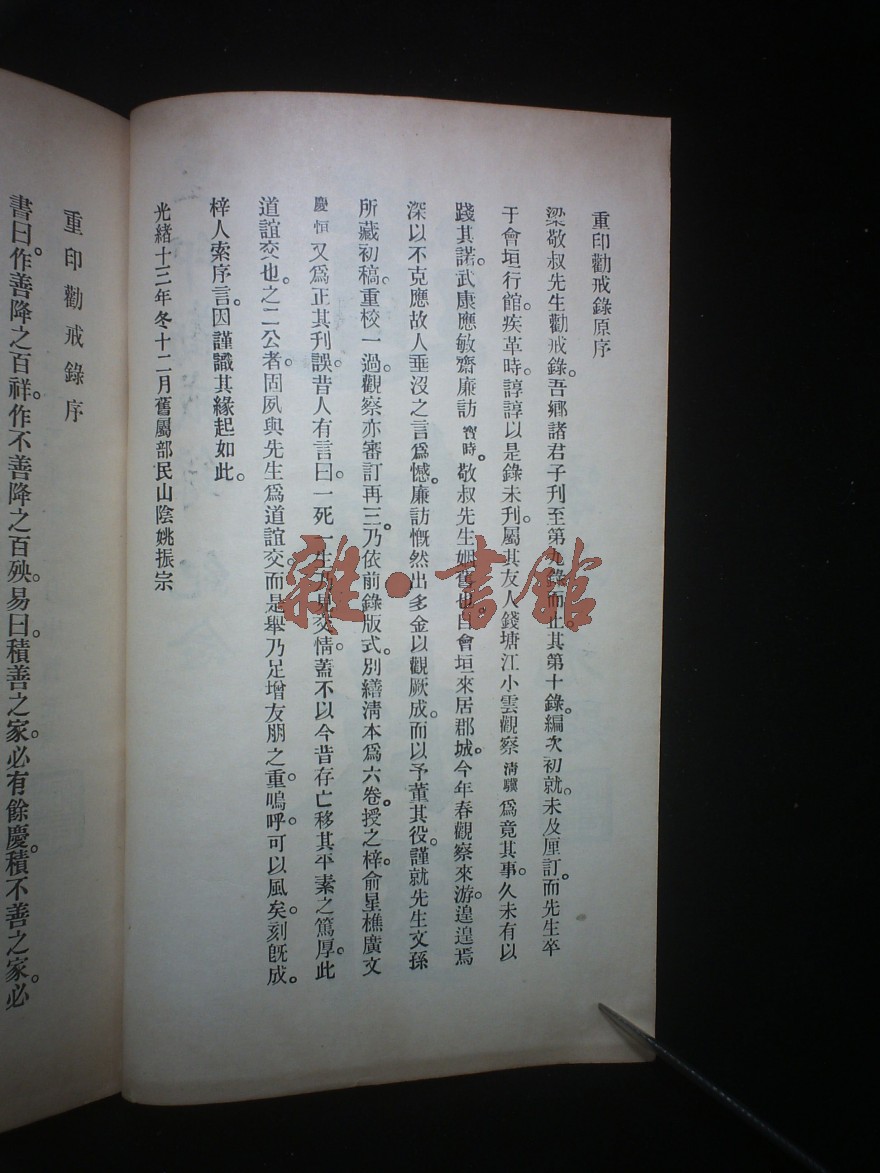 重印勸戒錄原序
梁敬叔先生勸戒錄。吾鄉諸君子刊至第九錄而止。其第十錄。編次初就。未及厘訂。而先生卒
于會垣行館。疾革時。諄諄以是錄未刊。屬其友人錢塘江小雲觀察清驥爲竟其事。久未有以
踐其諾。武康應敏齋廉訪寶時。敬叔先生姻舊也。自會垣來居郡城。今年春觀察來游。遑遑焉
深以不克應故人垂沒之言爲憾。廉訪慨然出多金以觀厥成。而以予董其役。謹就先生文孫
所藏初稿。重校一過。觀察亦審訂再三。乃依前錄版式。別繕淸本爲六卷。授之梓。俞星樵廣文
慶恒又爲正其刋誤。昔人有言曰。一死一生。乃見交情。蓋不以今昔存亡移其平素之篤厚。此
道誼交也。之二公者。固夙與先生爲道誼交。而是舉乃足增友朋之重。嗚呼。可以風矣。刻旣成。
梓人索序言。因謹識其緣起如此。
光緒十三年冬十二月舊屬部民山陰姚振宗
重印勸戒錄序
書曰。作善降之百祥。作不善降之百殃。易曰。積善之家。必有餘慶。積不善之家。必
雜·書館